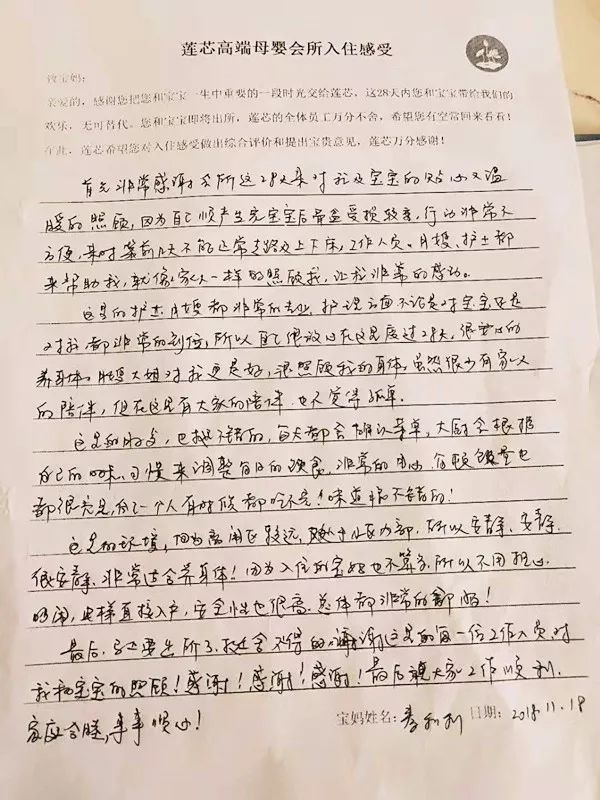 莲芯高端母婴会所入住感受
致宝妈:
亲爱的,感谢您把您和宝宝一生中重要的一段时光交给莲芯,这28天内您和宝宝带给我们的
欢乐,无可替代。您和宝宝即将出所,莲芯的全体员工万分不舍,希望您有空常回来看看!
在此,莲芯希望您对入住感受做出综合评价和提出宝贵意见,莲芯万分感谢!
首先非常感谢会所这28天来对我及宝宝的贴心又温
暖的照顾,因为自己顺产生完宝宝后骨盆受损较重,行动非常不
方便,来时前几天不能正常走路及上下床,工作人员、月嫂、护士都
来帮助我,就像家人一样的照顾我,让我非常的感动。
这里的护士、月嫂都非常的专业,护理方面不论是对宝宝还是
对我都非常的到位,所以自己很放心在这里度过28天,很安心的
养身体。月嫂大姐对我更是好,很照顾我的身体,虽然很少有家人
的陪伴,但在这里有大家的陪伴,也不觉得孤单。
这里的,也挺不错的,每天都会确认菜单,大厨会根据
自己的口味习惯来调整每日的饮食,非常的用心,每顿饭量也
都很充足,自己一个人有时候都吃不完!味道挺不错的!
这里的环境,因为离闹区较远,内部,所以安静、安静、
很安静,非常适合养身体!因为入住的宝妈也不算多,所以不用担心
吵闹,电梯直接入户,安全性也很高。总体都非常的舒服!
最后,马上要出所了,挺舍不得的,谢谢这里的每一份工作人员,对
我和宝宝的照顾!感谢!感谢!感谢!最后祝大家工作顺利,
家庭和睦,事事顺心!
宝妈姓名: 日期: 2018.11.18